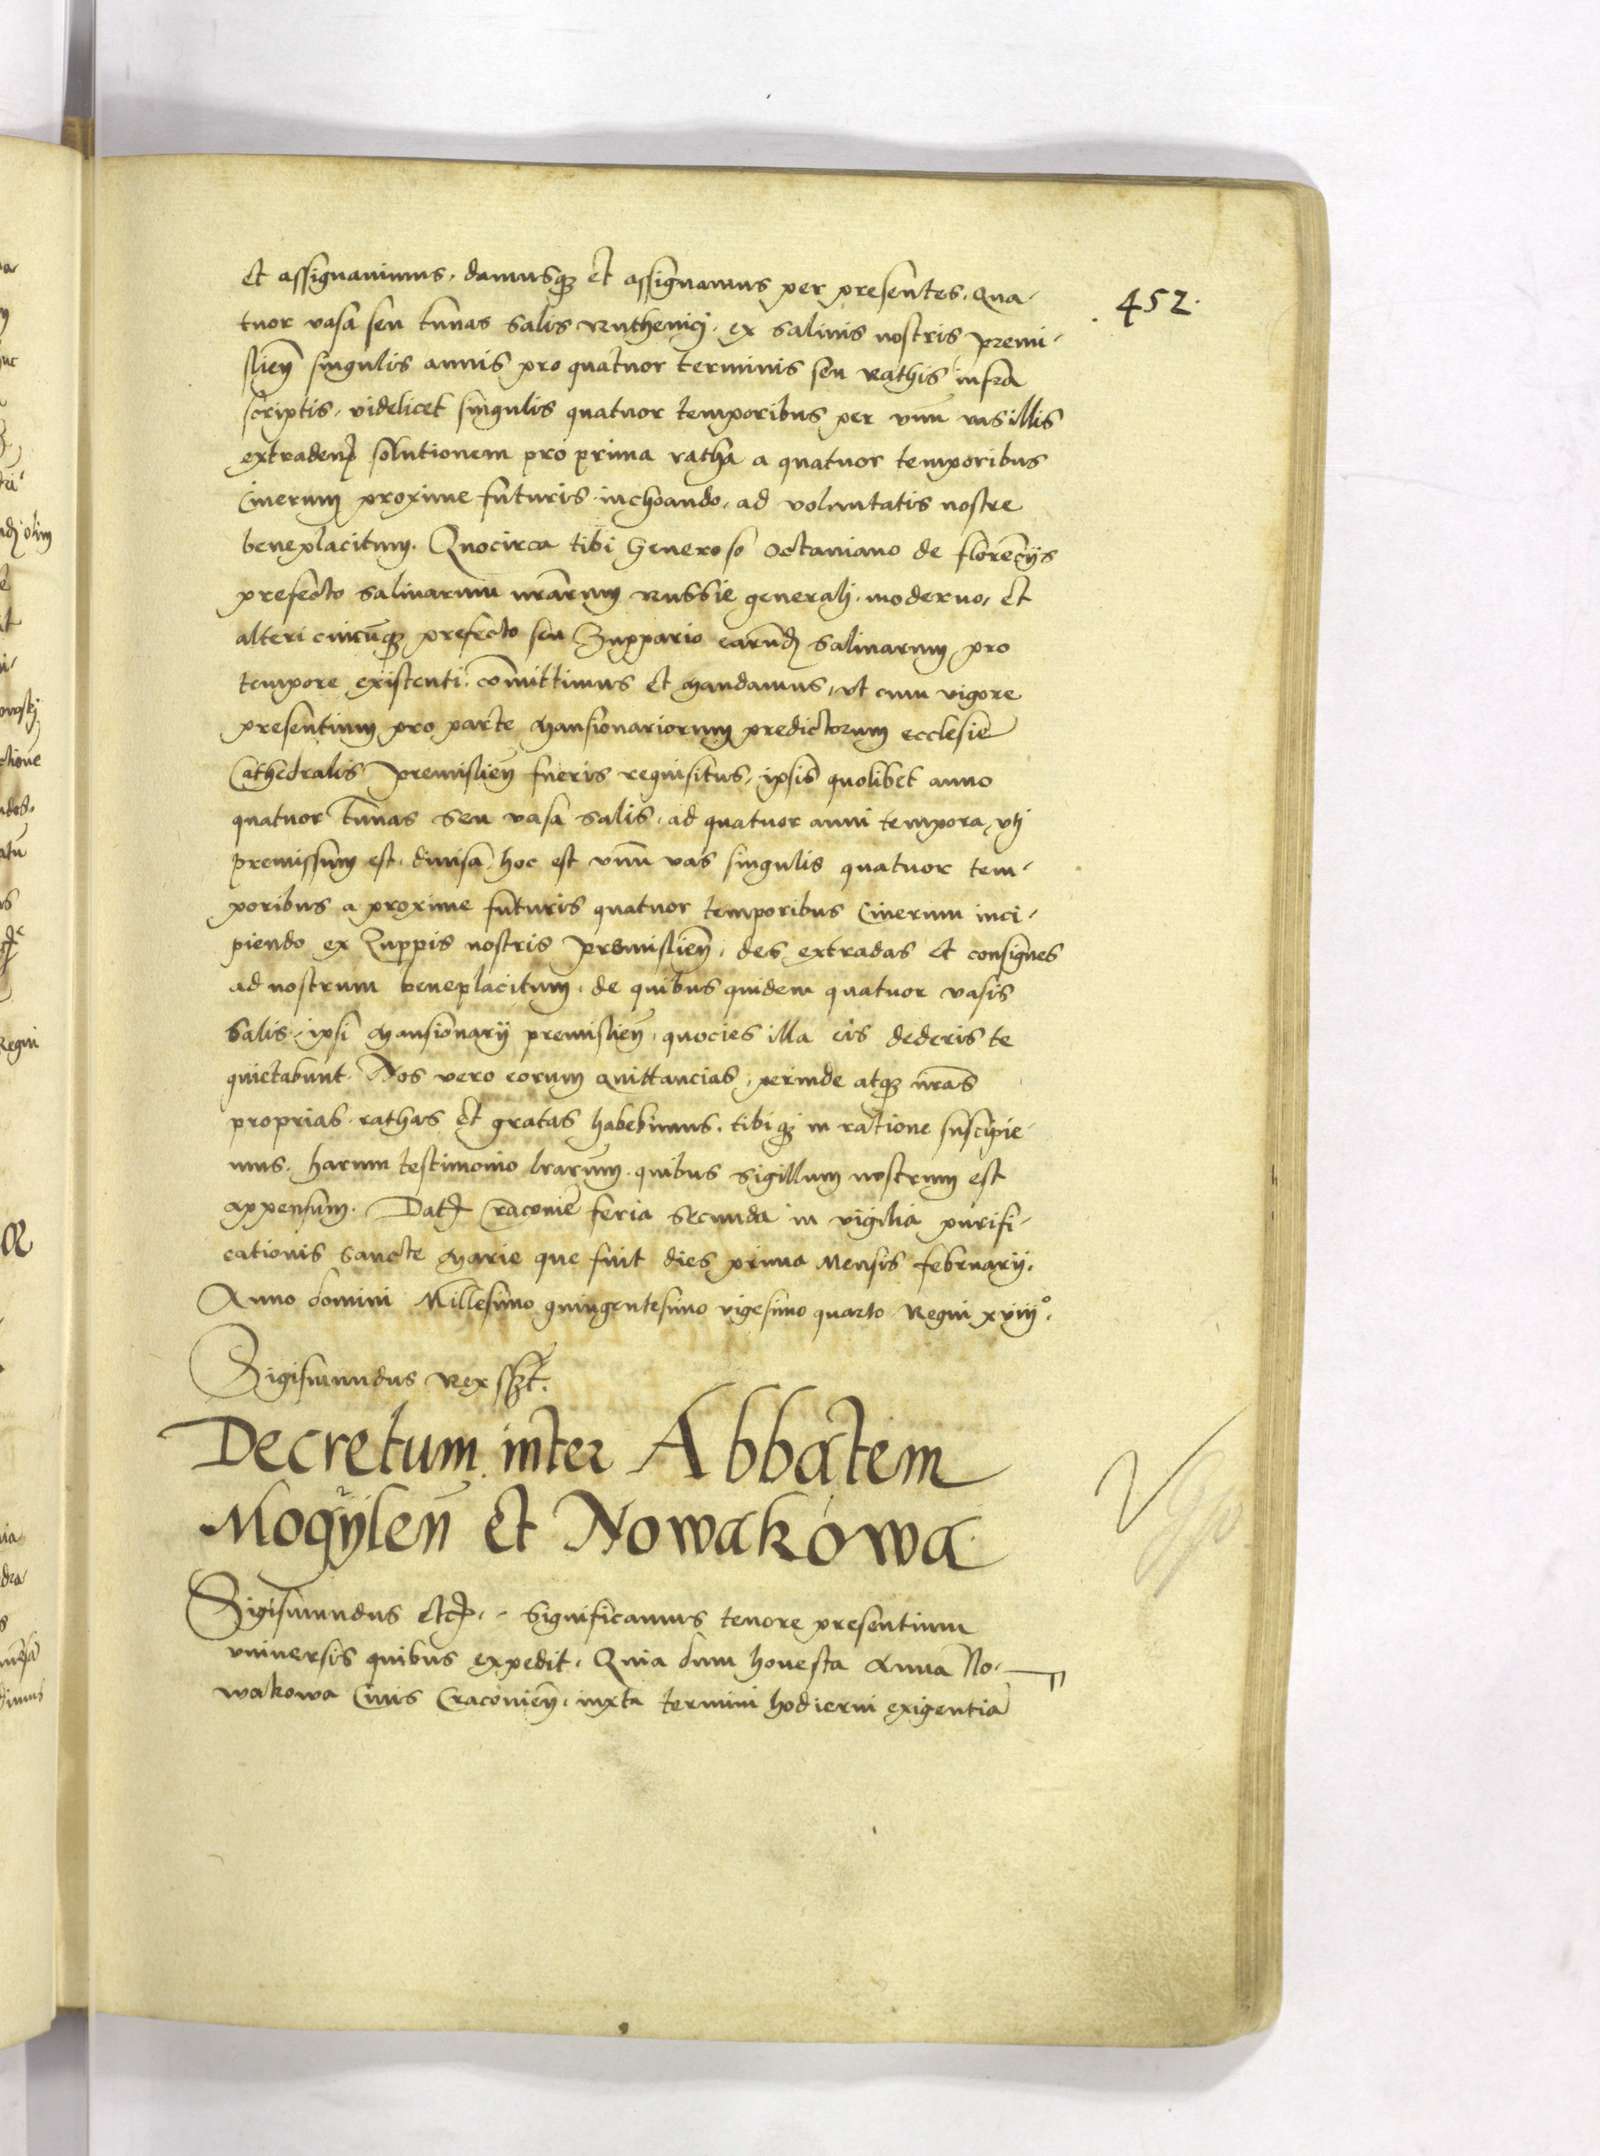 452.
et assignauimus. damusqz et assignamus per presentes. qua-
tuor vasa seu tunas salis Ruthenici. ex salinis nostris premi-
slien̄ singulis annis pro quatuor terminis seu rathis infra
scriptis. videlicet singulis quatuor temporibus per vnū vas illis
extraden̄ solutionem pro prima ratha a quatuor temporibus
Cinerum proxime futuris inchoando. ad voluntatis nostre
beneplacitum. Quocirca tibi Generoso Octauiano de florēciis
prefecto salinarum nr̄arum Russie generali. moderno. et
alteri cuicūqz prefecto seu Zuppario earūd salinarum pro
tempore existenti. cōmittimus et mandamus, vt cum vigore
presentium pro parte mansionariorum predictorum ecclesie
Cathedralis Premislien̄ fueris requisitus, ipsis quolibet anno
quatuor tunas seu vasa salis. ad quatuor anni tempora, vti
premissum est. diuisa. hoc est vnū vas singulis quatuor tem-
poribus a proxime futuris quatuor temporibus Cinerum inci-
piendo ex Zuppis nostris premislien̄. des extradas et consignes
ad nostrum beneplacitum. de quibus quidem quatuor vasis
salis. ipsi mansionarii premislien̄. quocies illa eis dederis te
quietabunt. Nos vero eorum quittancias, perinde atqz nr̄as
proprias. rathas et gratas habebimus. tibiqz in ratione suscipie-
mus. harum testimonio lr̄arum. quibus sigillum nostrum est
appensum. Dat Cracouie feria secunda in vigilia purifi-
cationis Sancte Marie que fuit dies prima Mensis februarii.
Anno domini Millesimo quingentesimo vigesimo quarto Regni xviii°.
Sigismundus Rex sszt.
Decretum inter Abbatem
Mogylen̄ et Nowakowa
Sigismundus etc. Significamus tenore presentium
vniuersis quibus expedit. Quia dum honesta Anna No-
wakowa Ciuis Cracouien̄. iuxta termini hodierni exigentiā